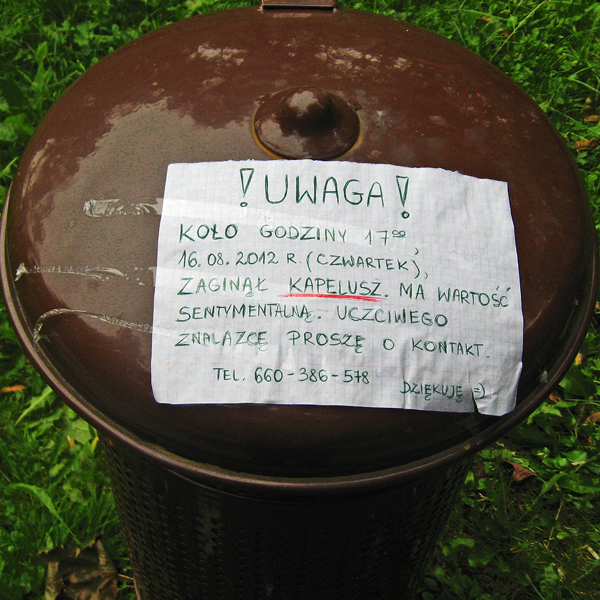 ! UWAGA !
KOŁO GODZINY 17⁰⁰,
16.08.2012 R. (CZWARTEK),
ZAGINĄŁ KAPELUSZ. MA WARTOŚĆ
SENTYMENTALNĄ. UCZCIWEGO
ZNALAZCĘ PROSZĘ O KONTAKT.
TEL. 660-386-578
DZIĘKUJĘ =)